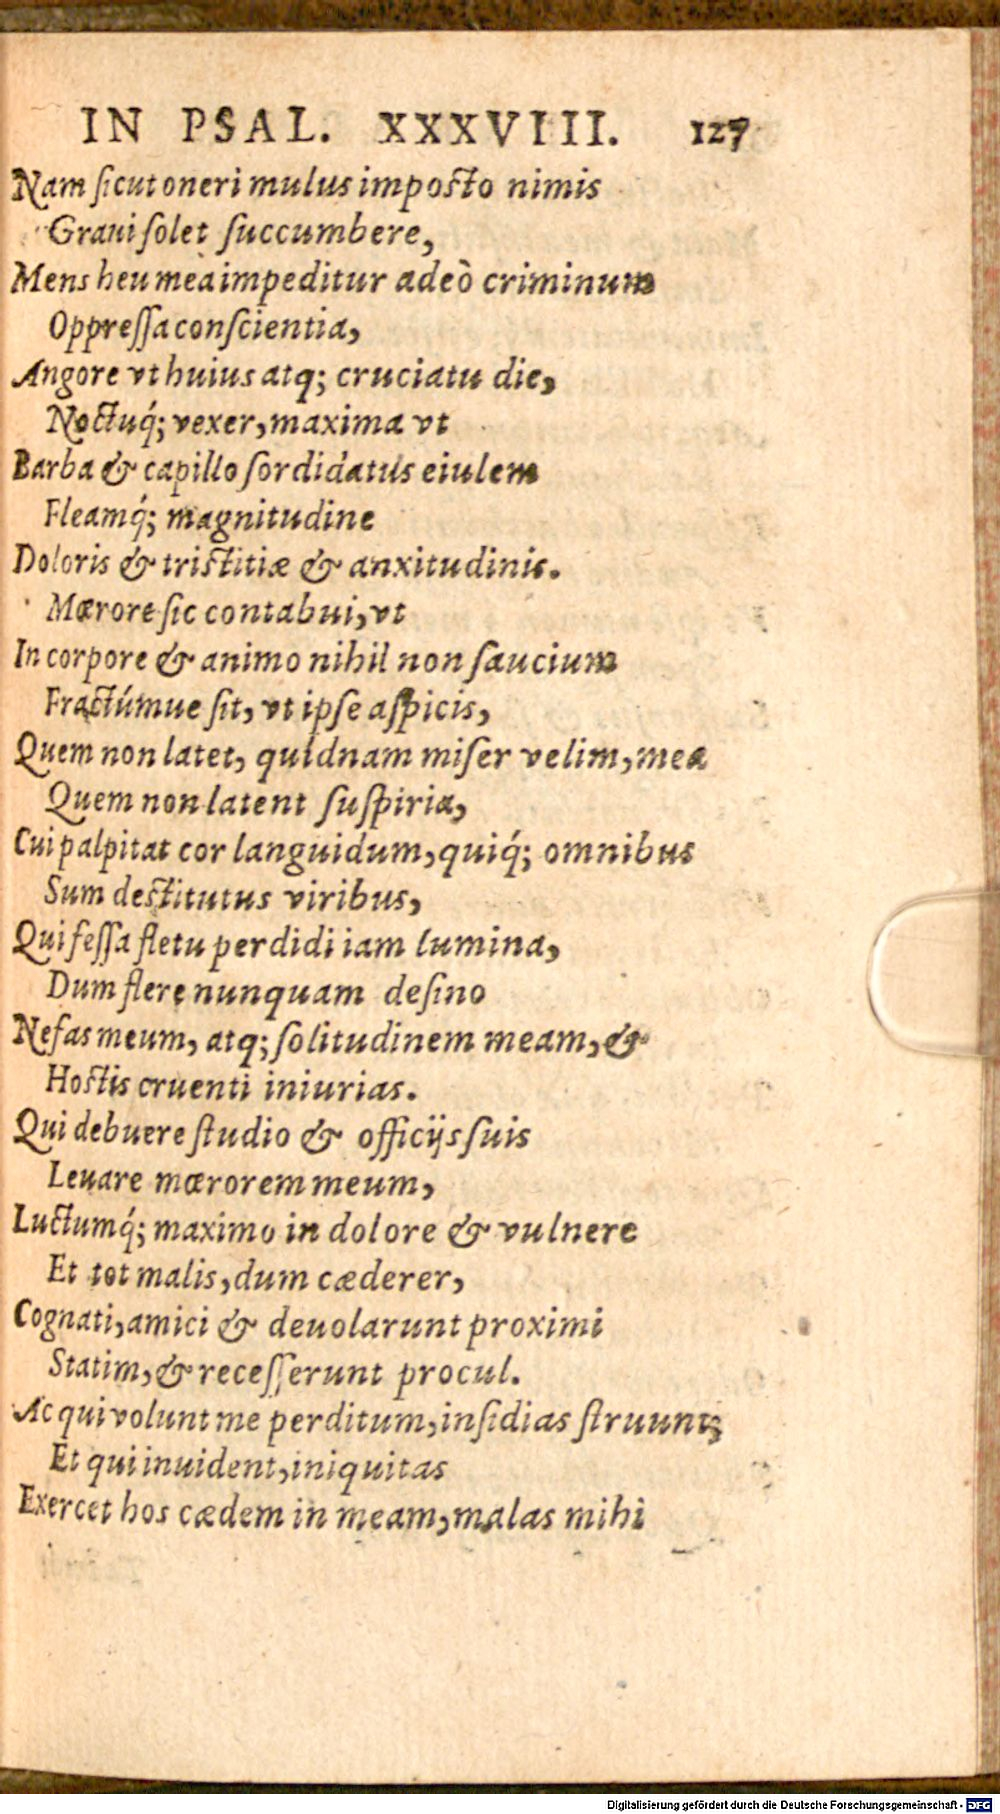 IN PSAL. XXXVIII. 127
Nam ſicut oneri mulus impoſto nimis
Graui ſolet ſuccumbere,
Mens heu mea impeditur adeò criminum
Oppreſſa conſcientia,
Angore vt huius atq; cruciatu die,
Noctuq́; vexer, maxima vt
Barba & capillo ſordidatus eiulem
Fleamq́; magnitudine
Doloris & triſtitiæ & anxitudinis.
Mœrore ſic contabui, vt
In corpore & animo nihil non ſaucium
Fractúmue ſit, vt ipſe aſpicis,
Quem non latet, quidnam miſer velim, mea
Quem non latent ſuſpiria,
Cui palpitat cor languidum, quiq́; omnibus
Sum deſtitutus viribus,
Qui feſſa fletu perdidi iam lumina,
Dum flere nunquam deſino
Nefas meum, atq; ſolitudinem meam, &
Hoſtis cruenti iniurias.
Qui debuere ſtudio & officijs ſuis
Leuare mœrorem meum,
Luctumq́; maximo in dolore & vulnere
Et tot malis, dum cæderer,
Cognati, amici & deuolarunt proximi
Statim, & receſſerunt procul.
Ac qui volunt me perditum, inſidias ſtruunt,
Et qui inuident, iniquitas
Exercet hos cædem in meam, malas mihi
Digitalisierung gefördert durch die Deutsche Forschungsgemeinschaft - DFG